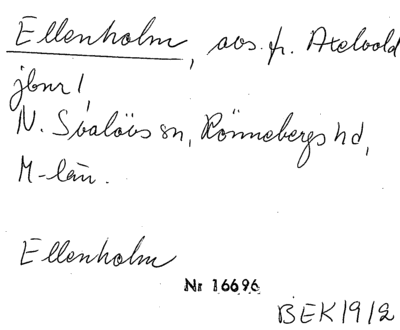 Ellenholm, avs. fr. Axelvold
jbnr 1,
N. Svalövs sn, Rönnebergs hd,
M-län.
Ellenholm
Nr 16696
BEK 19/2